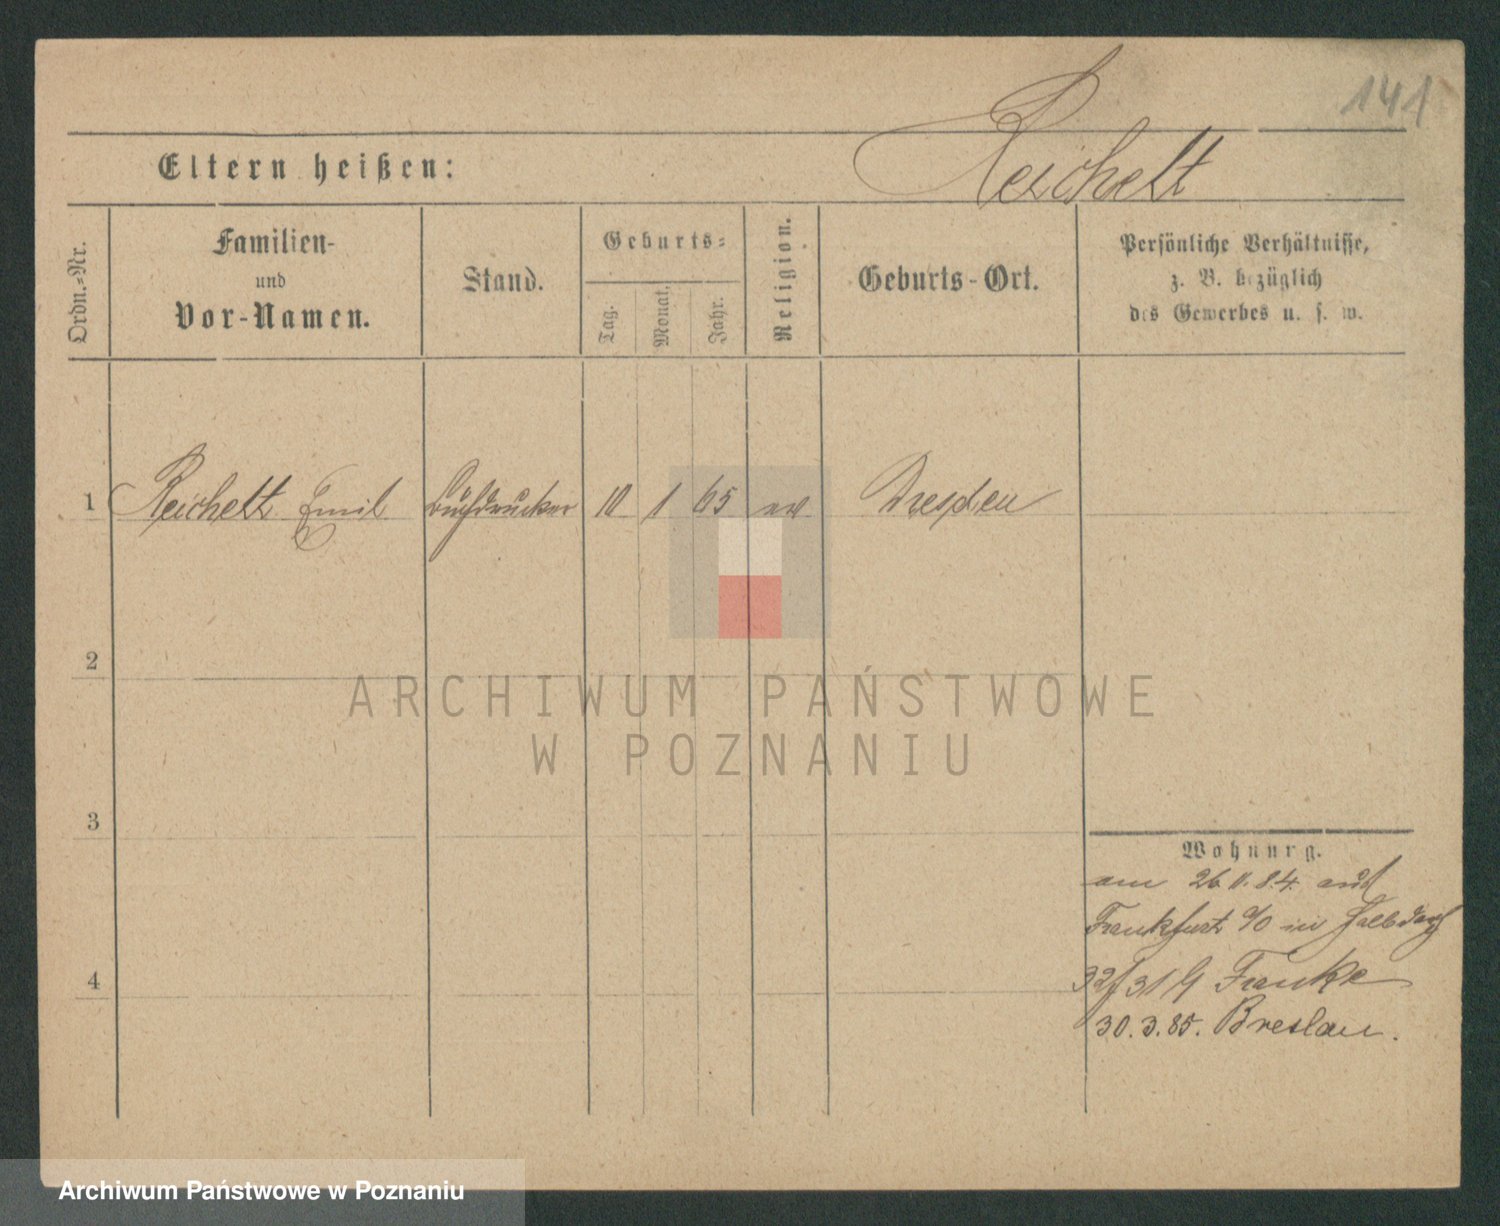 141
Reichelt
Eltern heißen:
Ordn.=Nr.
Familien-
und
Vor-Namen.
Stand.
Geburts=
Tag.
Monat.
Jahr.
Religion.
Geburts-Ort.
Persönliche Verhältnisse,
z. B. bezüglich
des Gewerbes u. s. w.
1 Reichelt Emil Buchdrucker 10 1 65 ev Dresden
2
ARCHIWUM PAŃSTWOWE
W POZNANIU
3
Wohnung.
am 26 11. 84. aus
Frankfurt a/O in Halbdorf
32/31 b Franke
4
30.3.85. Breslau.
Archiwum Państwowe w Poznaniu